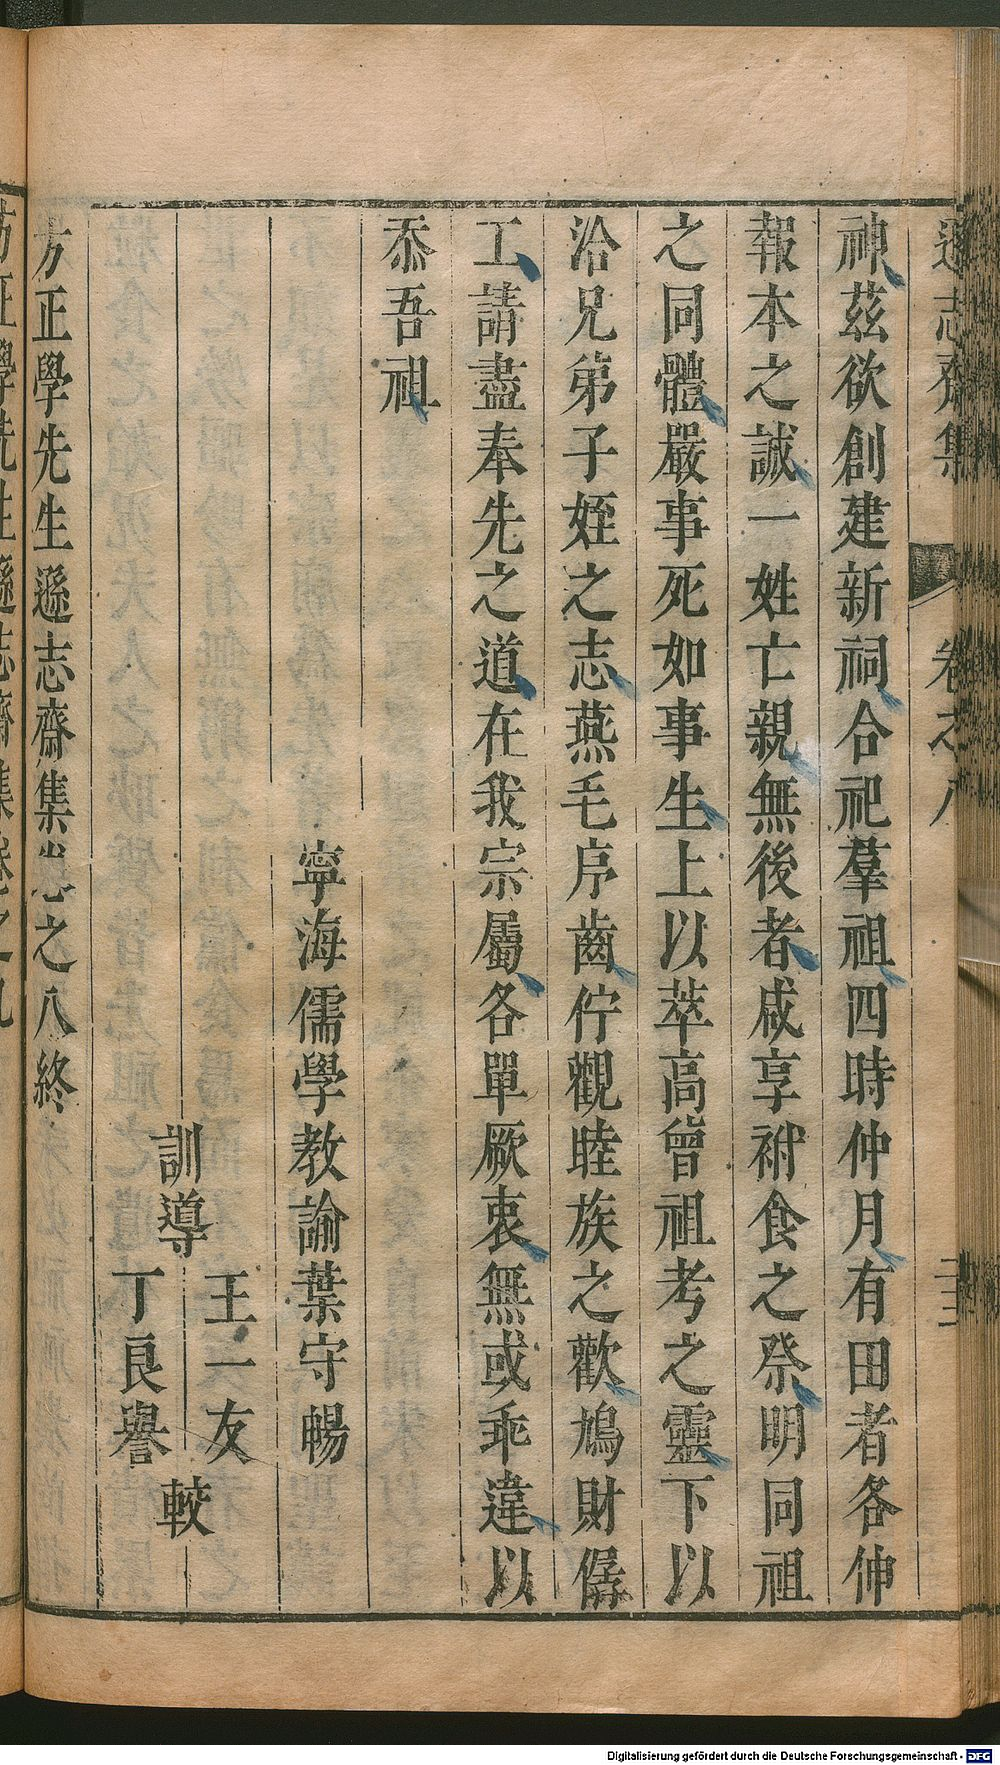 遜志齋集 卷之八
神茲欲創建新祠合祀羣祖四時仲月有田者各伸
報本之誠一姓亡親無後者咸享祔食之祭明同祖
之同體嚴事死如事生上以萃高曾祖考之靈下以
洽兄弟子姪之志燕毛序齒佇觀睦族之歡鳩財僝
工請盡奉先之道在我宗屬各單厥衷無或乖違以
忝吾祖
寧海儒學教諭葉守暢
訓導 王一友
丁良譽 較
方正學先生遜志齋集卷之八終
方正學先生遜志齋集卷之九
Digitalisierung gefördert durch die Deutsche Forschungsgemeinschaft - DFG